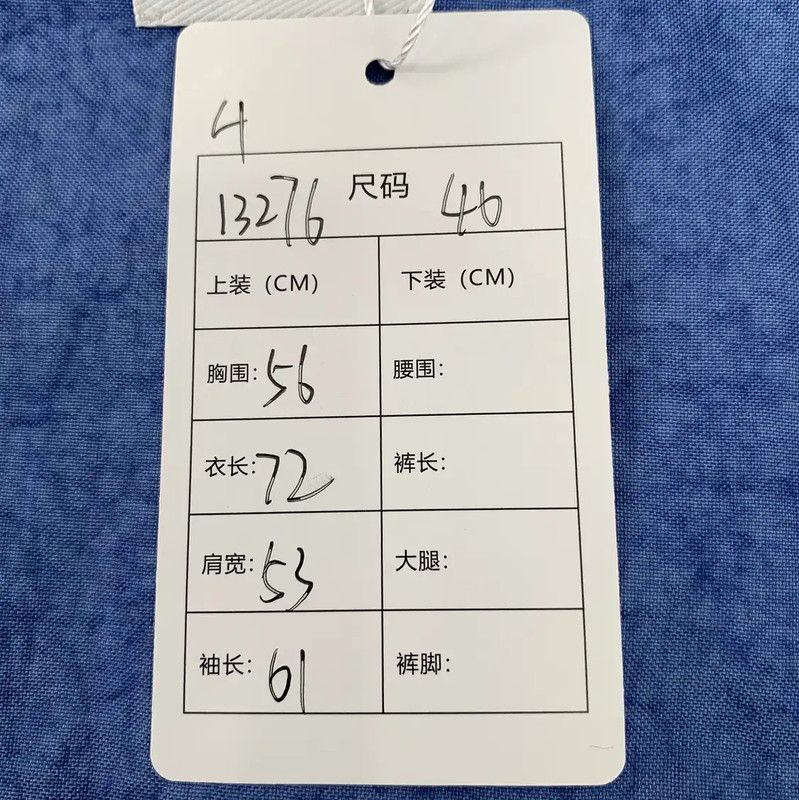 4
13276 尺码 46
上装（CM） 下装（CM）
胸围：56 腰围：
衣长：72 裤长：
肩宽：53 大腿：
袖长：61 裤脚：